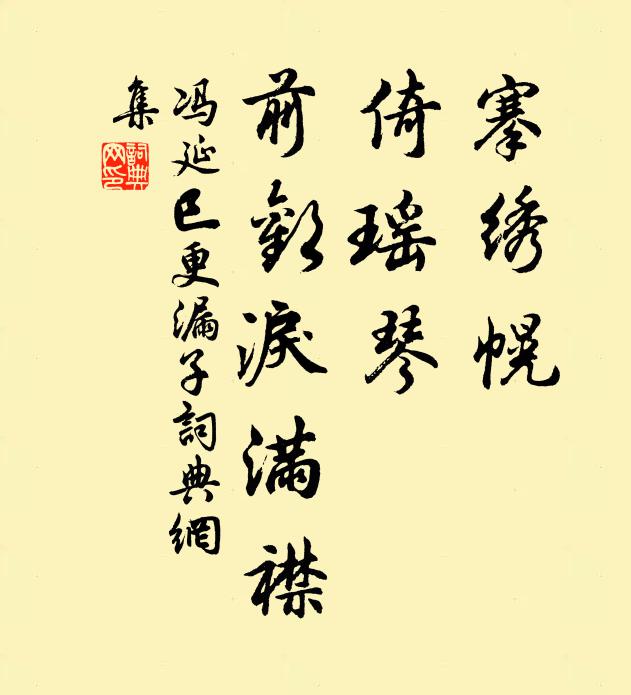 搴绣幌
倚瑶琴
前欢泪满襟
冯延巳更漏子詞典網
集
詞典
网印